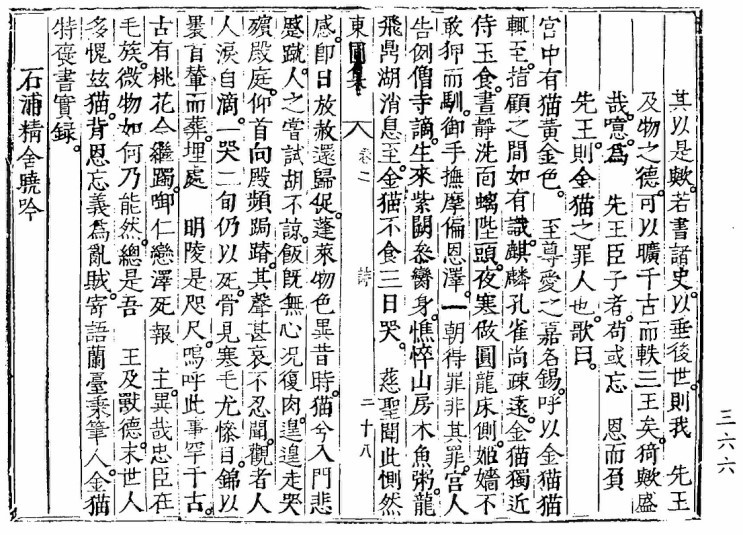 其以是歟。若書諸史。以垂後世。則我 先王
及物之德。可以曠千古而軼三王矣。猗歟盛
哉。噫。爲 先王臣子者。苟或忘 恩而負
先王。則金猫之罪人也。歌曰。
宮中有猫黃金色。 至尊愛之嘉名錫。呼以金猫猫
輒至。指顧之間如有識。麒麟孔雀尙疎遠。金猫獨近
侍玉食。晝靜洗面螭陛頭。夜寒做圓龍床側。姬嬙不
敢狎而馴。御手撫摩偏恩澤。一朝得罪非其罪。宮人
告例僧寺謫。生來紫闕參鸞身。憔悴山房木魚粥。龍
飛鼎湖消息至。金猫不食三日哭。 慈聖聞此惻然
東圃集 卷之 詩 二十八
感。卽日放赦還歸促。蓬萊物色異昔時。猫兮入門悲
慼蹴。人之嘗試胡不諒。飯旣無心況復肉。遑遑走哭
殯殿庭。仰首向殿頻跼蹐。其聲甚哀不忍聞。觀者人
人淚自滴。一哭二旬仍以死。骨見寒毛尤慘目。錦以
裹首輦而葬。埋處 明陵是咫尺。嗚呼此事罕于古。
古有桃花今繼躅。啣仁戀澤死報 主。異哉忠臣在
毛族。微物如何乃能然。總是吾 王及獸德。末世人
多愧玆猫。背恩忘義爲亂賊。寄語蘭臺秉筆人。金猫
特褒書實錄。
石浦精舍曉吟
三六六